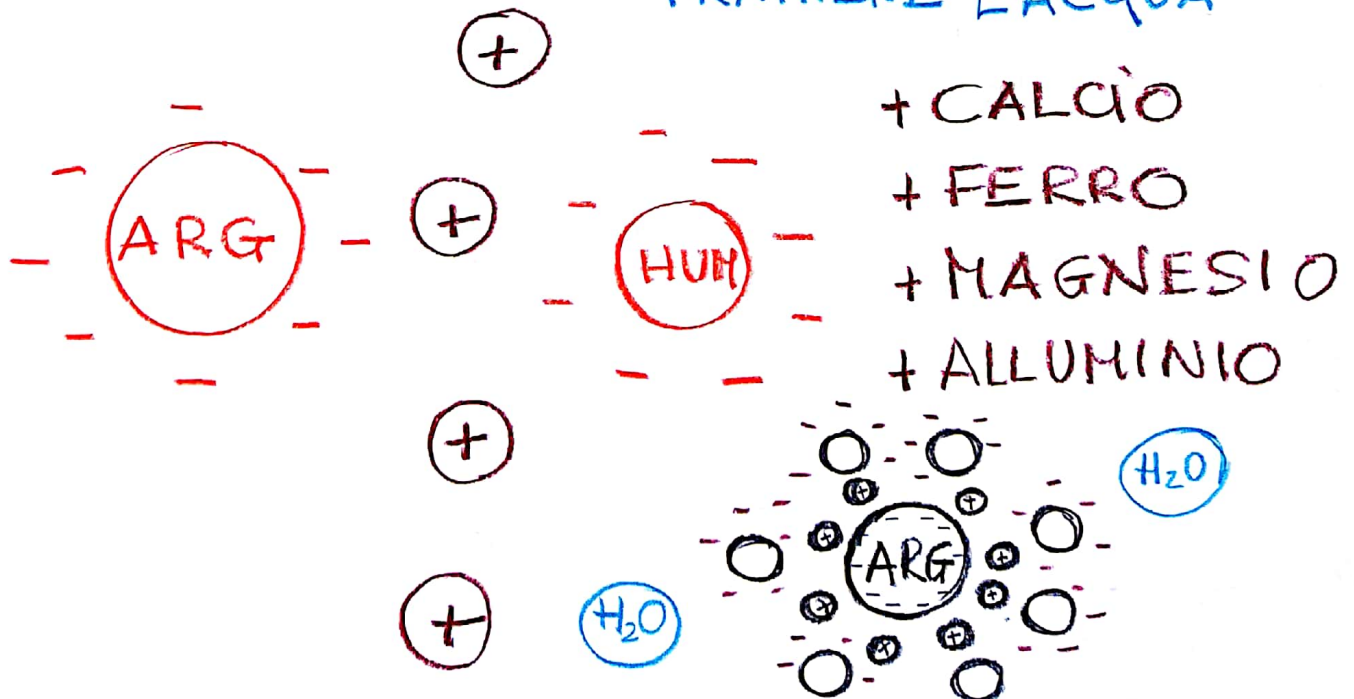 L'ACQUA
+ CALCIO
+ FERRO
+ MAGNESIO
+ ALLUMINIO
ARG
+
+
HUM
+
+
H₂O
ARG
H₂O